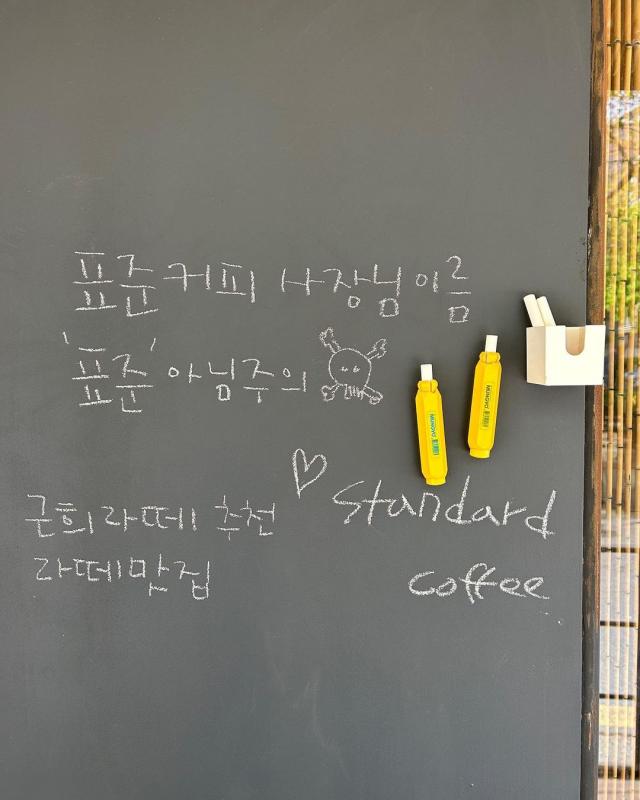 표준커피 사장님이름
'표준' 아님주의
근희라떼 추천
라떼맛집
Standard
coffee
MUNGYO
MUNGYO